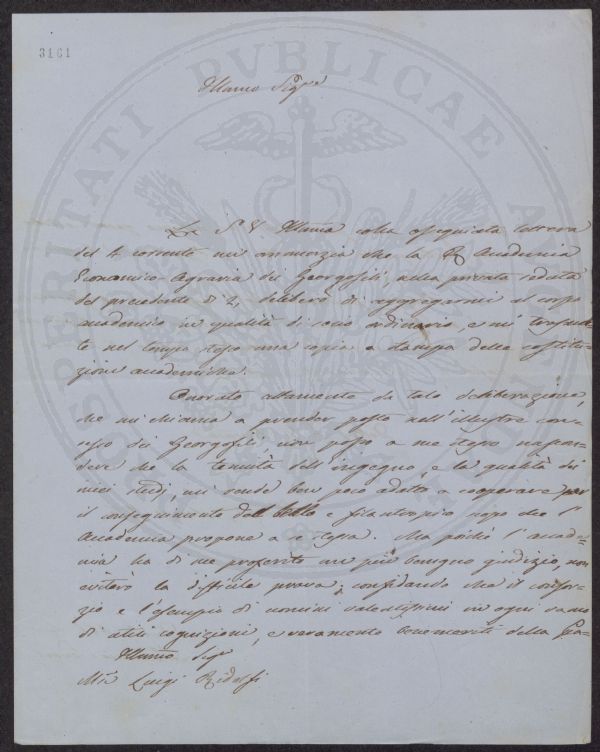 3161
PROSPERITATI PUBLICAE AUGENDAE
Illmo Sigre
La S. V. Illma colla ossequiata lettera
del 4 corrente mi annunzia che la R. Accademia
Economico-Agraria dei Georgofili, nella privata seduta
del precedente dì 2, deliberò di aggregarmi al corpo
accademico in qualità di socio ordinario, e mi trasmet-
te nel tempo stesso una copia a stampa delle costitu-
zioni accademiche.
Onorato altamente da tale deliberazione,
che mi chiama a prender posto nell'illustre con-
sesso dei Georgofili non posso a me stesso nascon-
dere che la tenuità dell'ingegno, e la qualità dei
miei studi, mi rende ben poco adatto a cooperare per
il conseguimento del bello e filantropico scopo che l'
Accademia propone a se stessa. Ma poichè l'accade-
mia ha di me proferito un più benigno giudizio, non
eviterò la difficile prova; confidando che il consor-
zio e l'esempio di uomini valentissimi in ogni ramo
di utili cognizioni, e veramente benemeriti della
Illmo Sigre
Mse Luigi Ridolfi